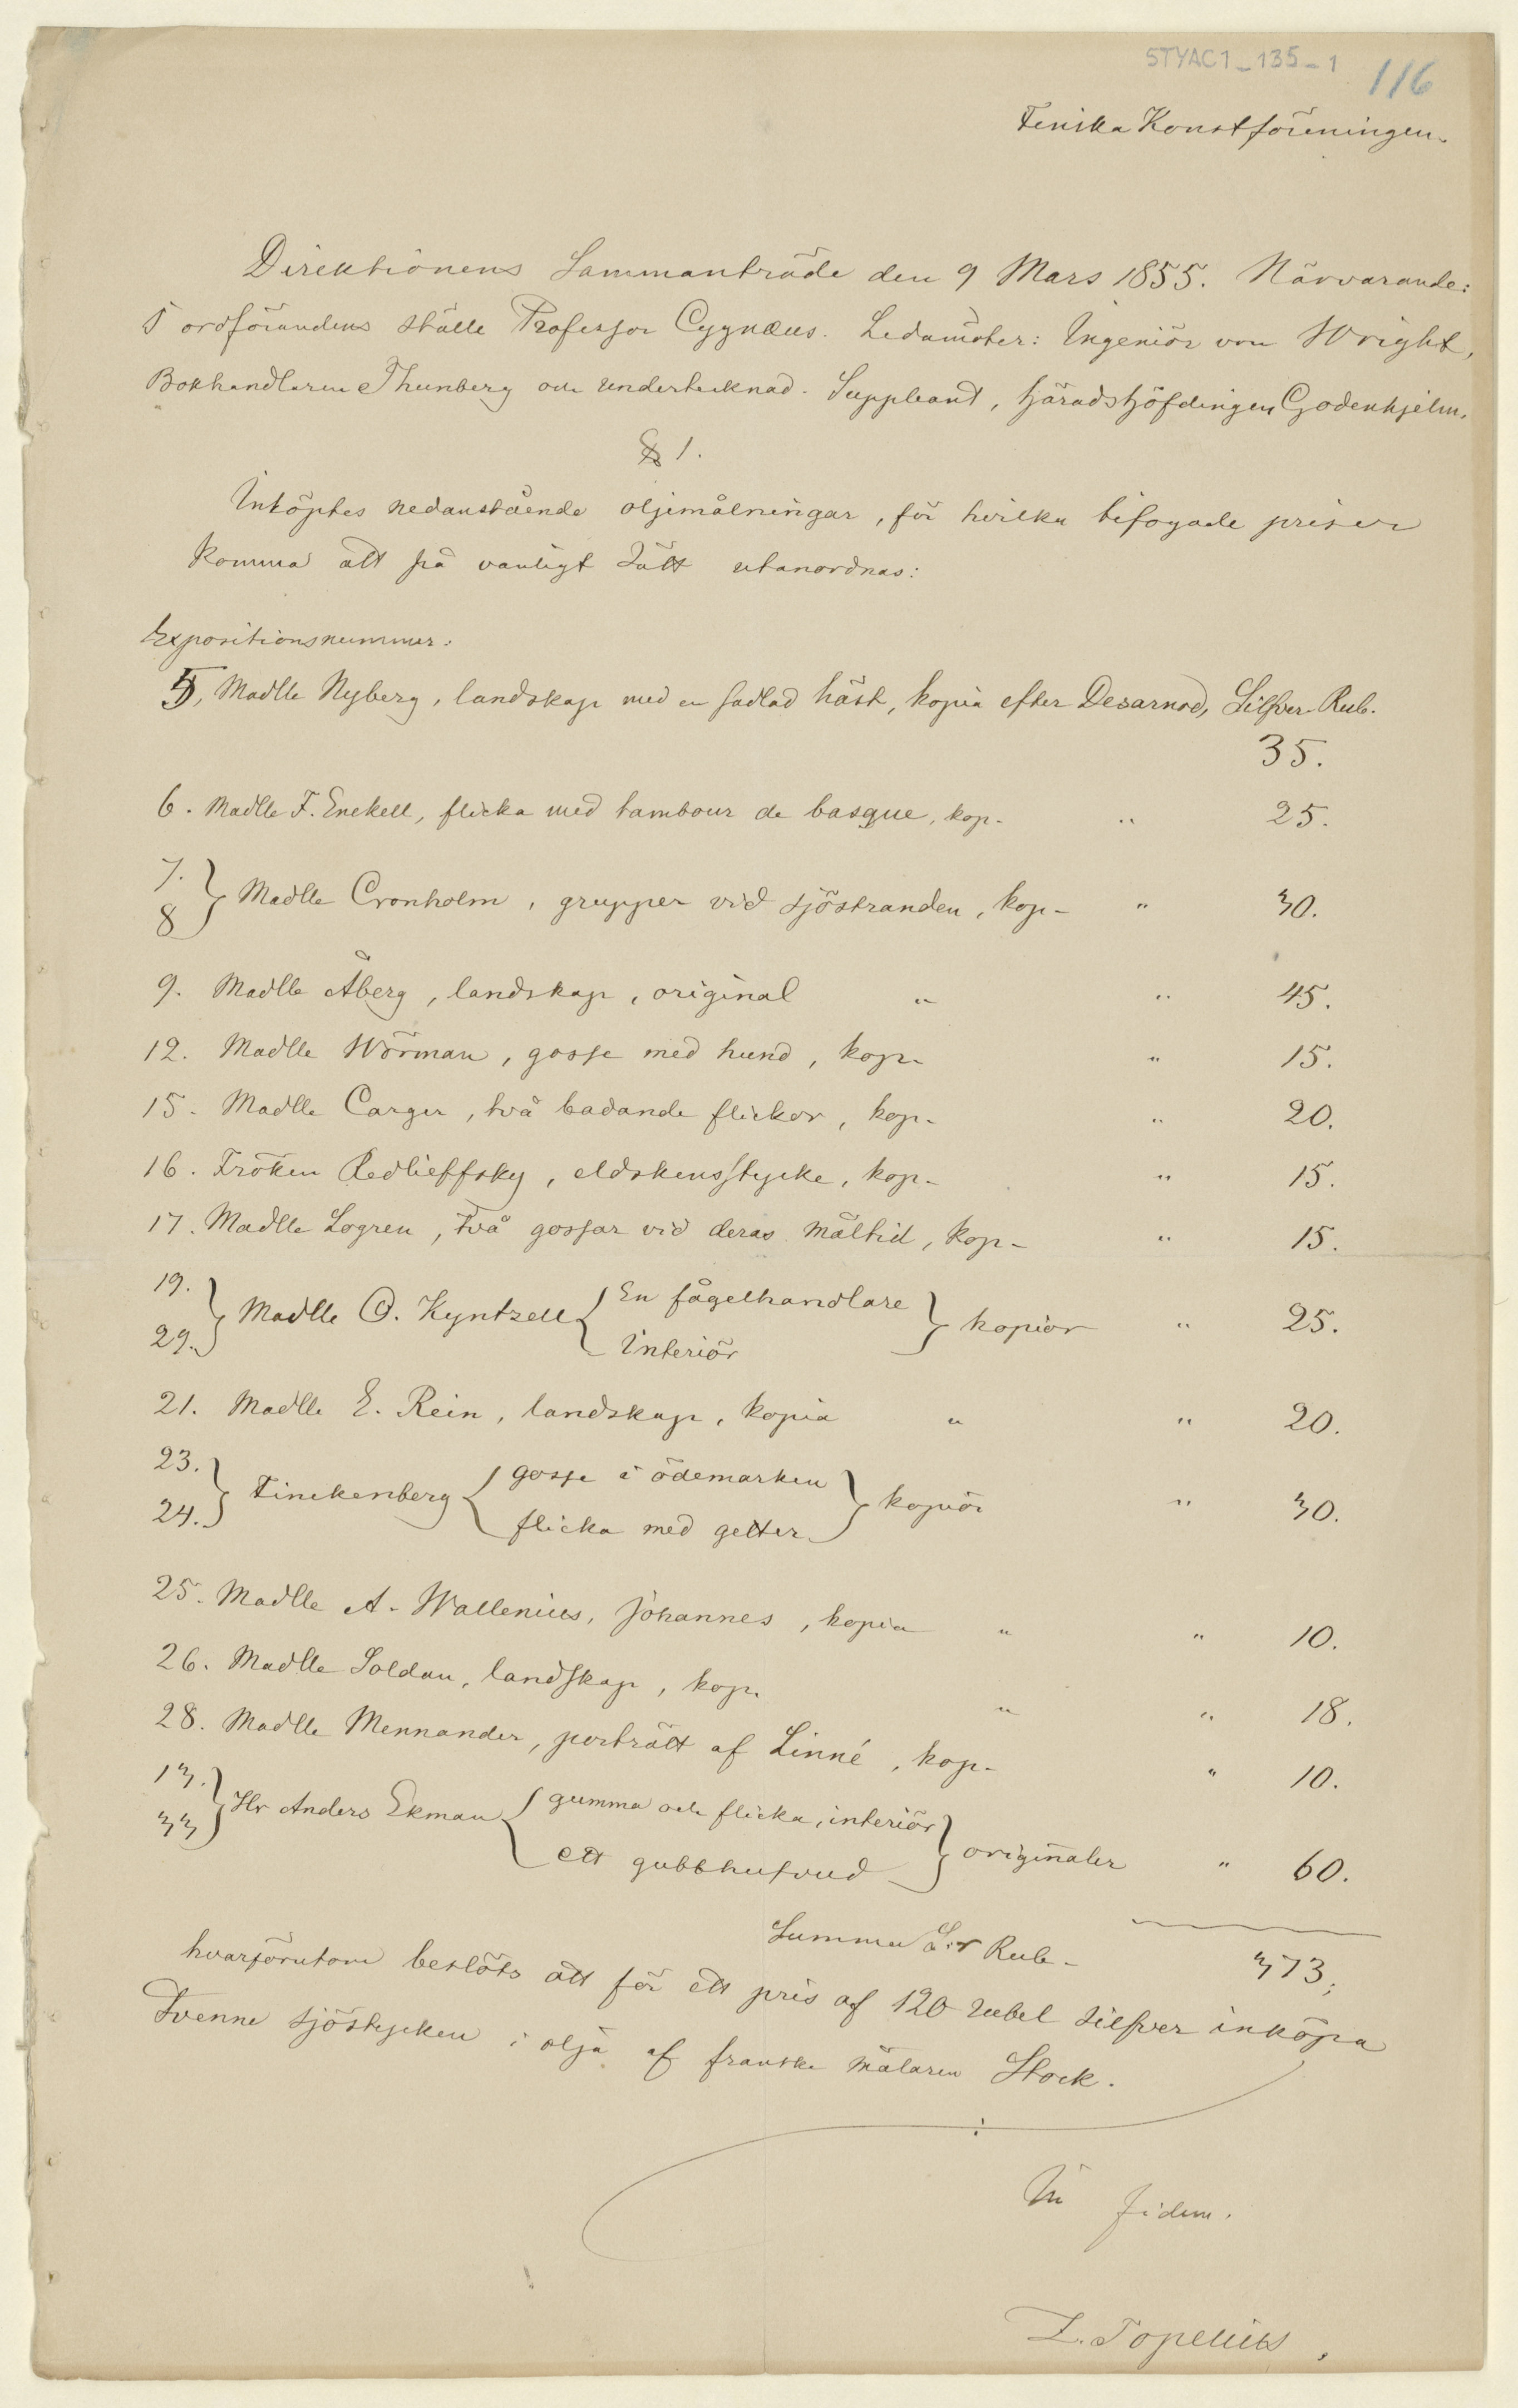 STYAC1_135-1
116
Finska Konstföreningen.
Direktionens Sammanträde den 9 Mars 1855. Närvarande:
I ordförandens ställe Professor Cygnæus. Ledamöter: Ingeniör von Wright,
Bokhandlaren Thunberg och undertecknad. Suppleant, Häradshöfdingen Godenhjelm.
§ 1.
Inköptes nedanstående oljemålningar, för hvilka bifogade priser
komma att på vanligt sätt utanordnas:
Expositionsnummer:
5, Madlle Nyberg, landskap med en sadlad häst, kopia efter Desarnod, Silfver Rub.
35.
6. Madlle F. Enckell, flicka med tambour de basque, kop. " 25.
7.
8 } Madlle Cronholm, grupper vid sjöstranden, kop. " 30.
9. Madlle Åberg, landskap, original " " 45.
12. Madlle Wörman, gosse med hund, kop. " 15.
15. Madlle Carger, två badande flickor, kop. " 20.
16. Fröken Redlieffsky, eldskensstycke, kop. " 15.
17. Madlle Logren, två gossar vid deras måltid, kop. " 15.
19.
29. } Madlle O. Kyntzell { En fågelhandlare
Interiör } kopior " 25.
21. Madlle E. Rein, landskap, kopia " " 20.
23.
24. } Finckenberg { gosse i ödemarken
flicka med getter } kopior " 30.
25. Madlle A. Wallenius, Johannes, kopia " " 10.
26. Madlle Soldan, landskap, kop. " " 18.
28. Madlle Mennander, porträtt af Linné, kop. " 10.
13.
33 } Hr Anders Ekman { gumma och flicka, interiör
ett gubbhufvud } originaler " 60.
Summa S:r Rub. 373;
hvarförutom beslöts att för ett pris af 120 rubel silfver inköpa
Tvenne sjöstycken i olja af franske målaren Stock.
In fidem.
Z. Topelius.